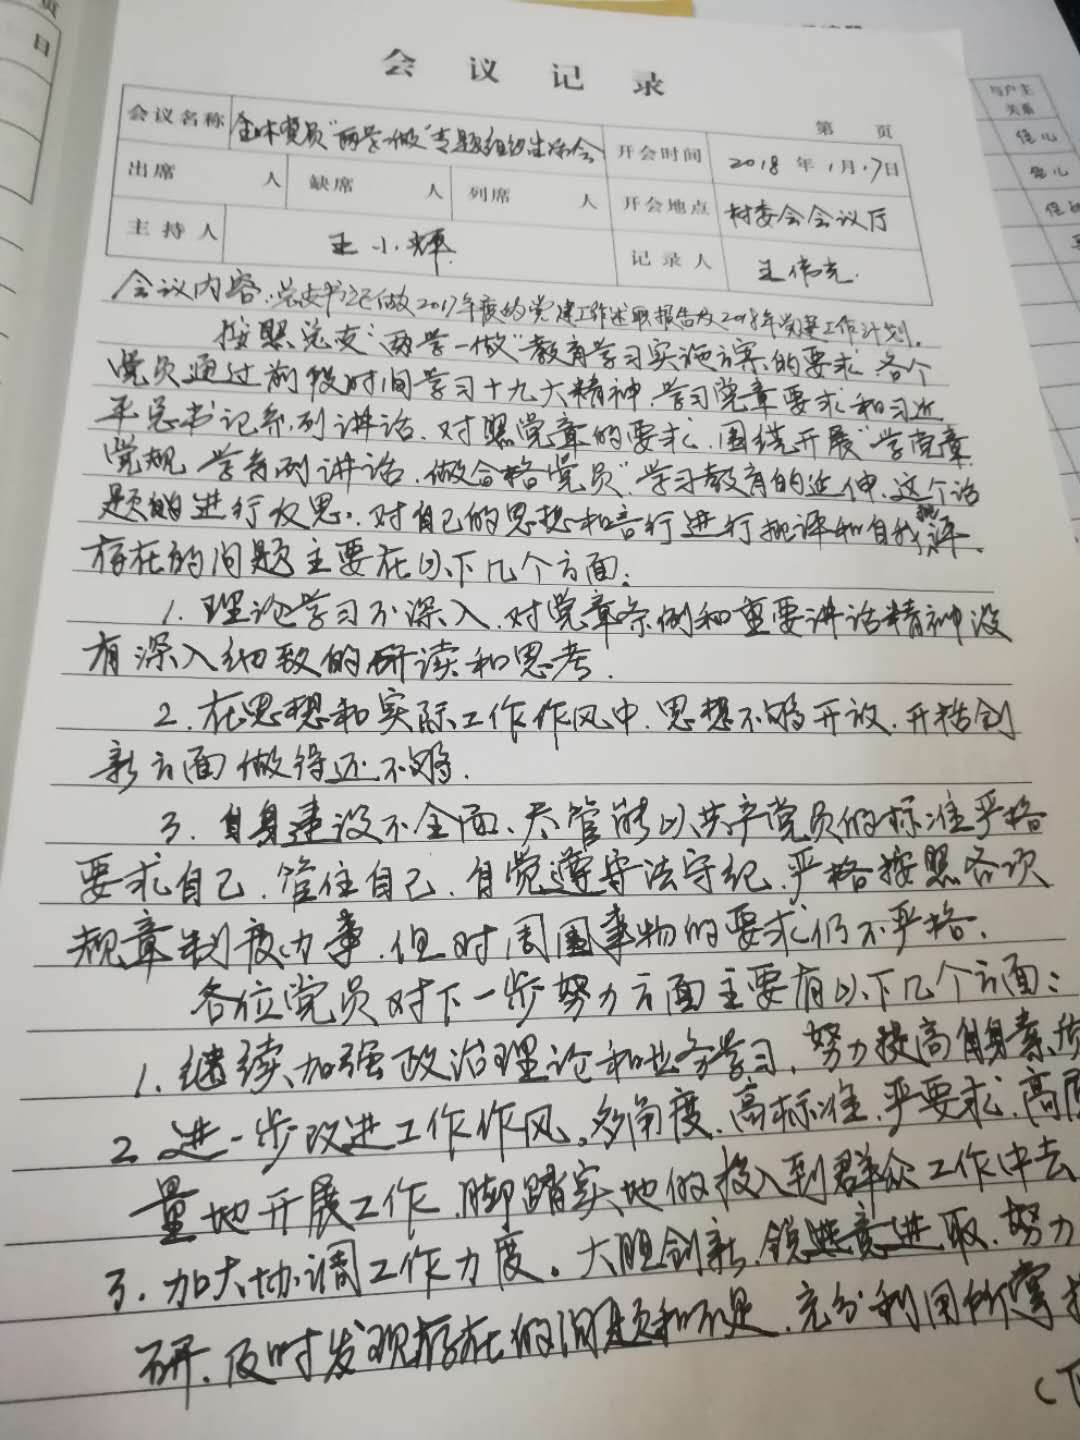 会议记录
第 页
会议名称 全体党员“两学一做”专题组织生活会 开会时间 2018年1月17日
出席 人 缺席 人 列席 人 开会地点 村委会会议厅
主持人 王小辉 记录人 王伟克
会议内容:党支书记做2017年度的党建工作述职报告及2018年党建工作计划.
按照总支“两学一做”教育学习实施方案的要求.各个
党员通过前段时间学习十九大精神.学习党章要求和习近
平总书记系列讲话.对照党章的要求.围绕开展“学党章
党规 学系列讲话.做合格党员”学习教育的延伸.这个话
题的进行反思.对自己的思想和言行进行批评和自我批评.
存在的问题主要在以下几个方面:
1.理论学习不深入.对党章条例和重要讲话精神没
有深入细致的研读和思考.
2.在思想和实际工作作风中.思想不够开放.开拓创
新方面做得还不够.
3.自身建设不全面、尽管能以共产党员的标准严格
要求自己.管住自己.自觉遵守法守纪.严格按照各项
规章制度办事.但对周围事物的要求仍不严格.
各位党员对下一步努力方面主要有以下几个方面:
1.继续加强政治理论和业务学习.努力提高自身素质
2.进一步改进工作作风。多角度.高标准.严要求.高质
量地开展工作.脚踏实地的投入到群众工作中去
3.加大协调工作力度。大胆创新.锐意进取.努力
研.及时发现存在的问题和不足.充分利用所掌
与户主
关系
侄儿